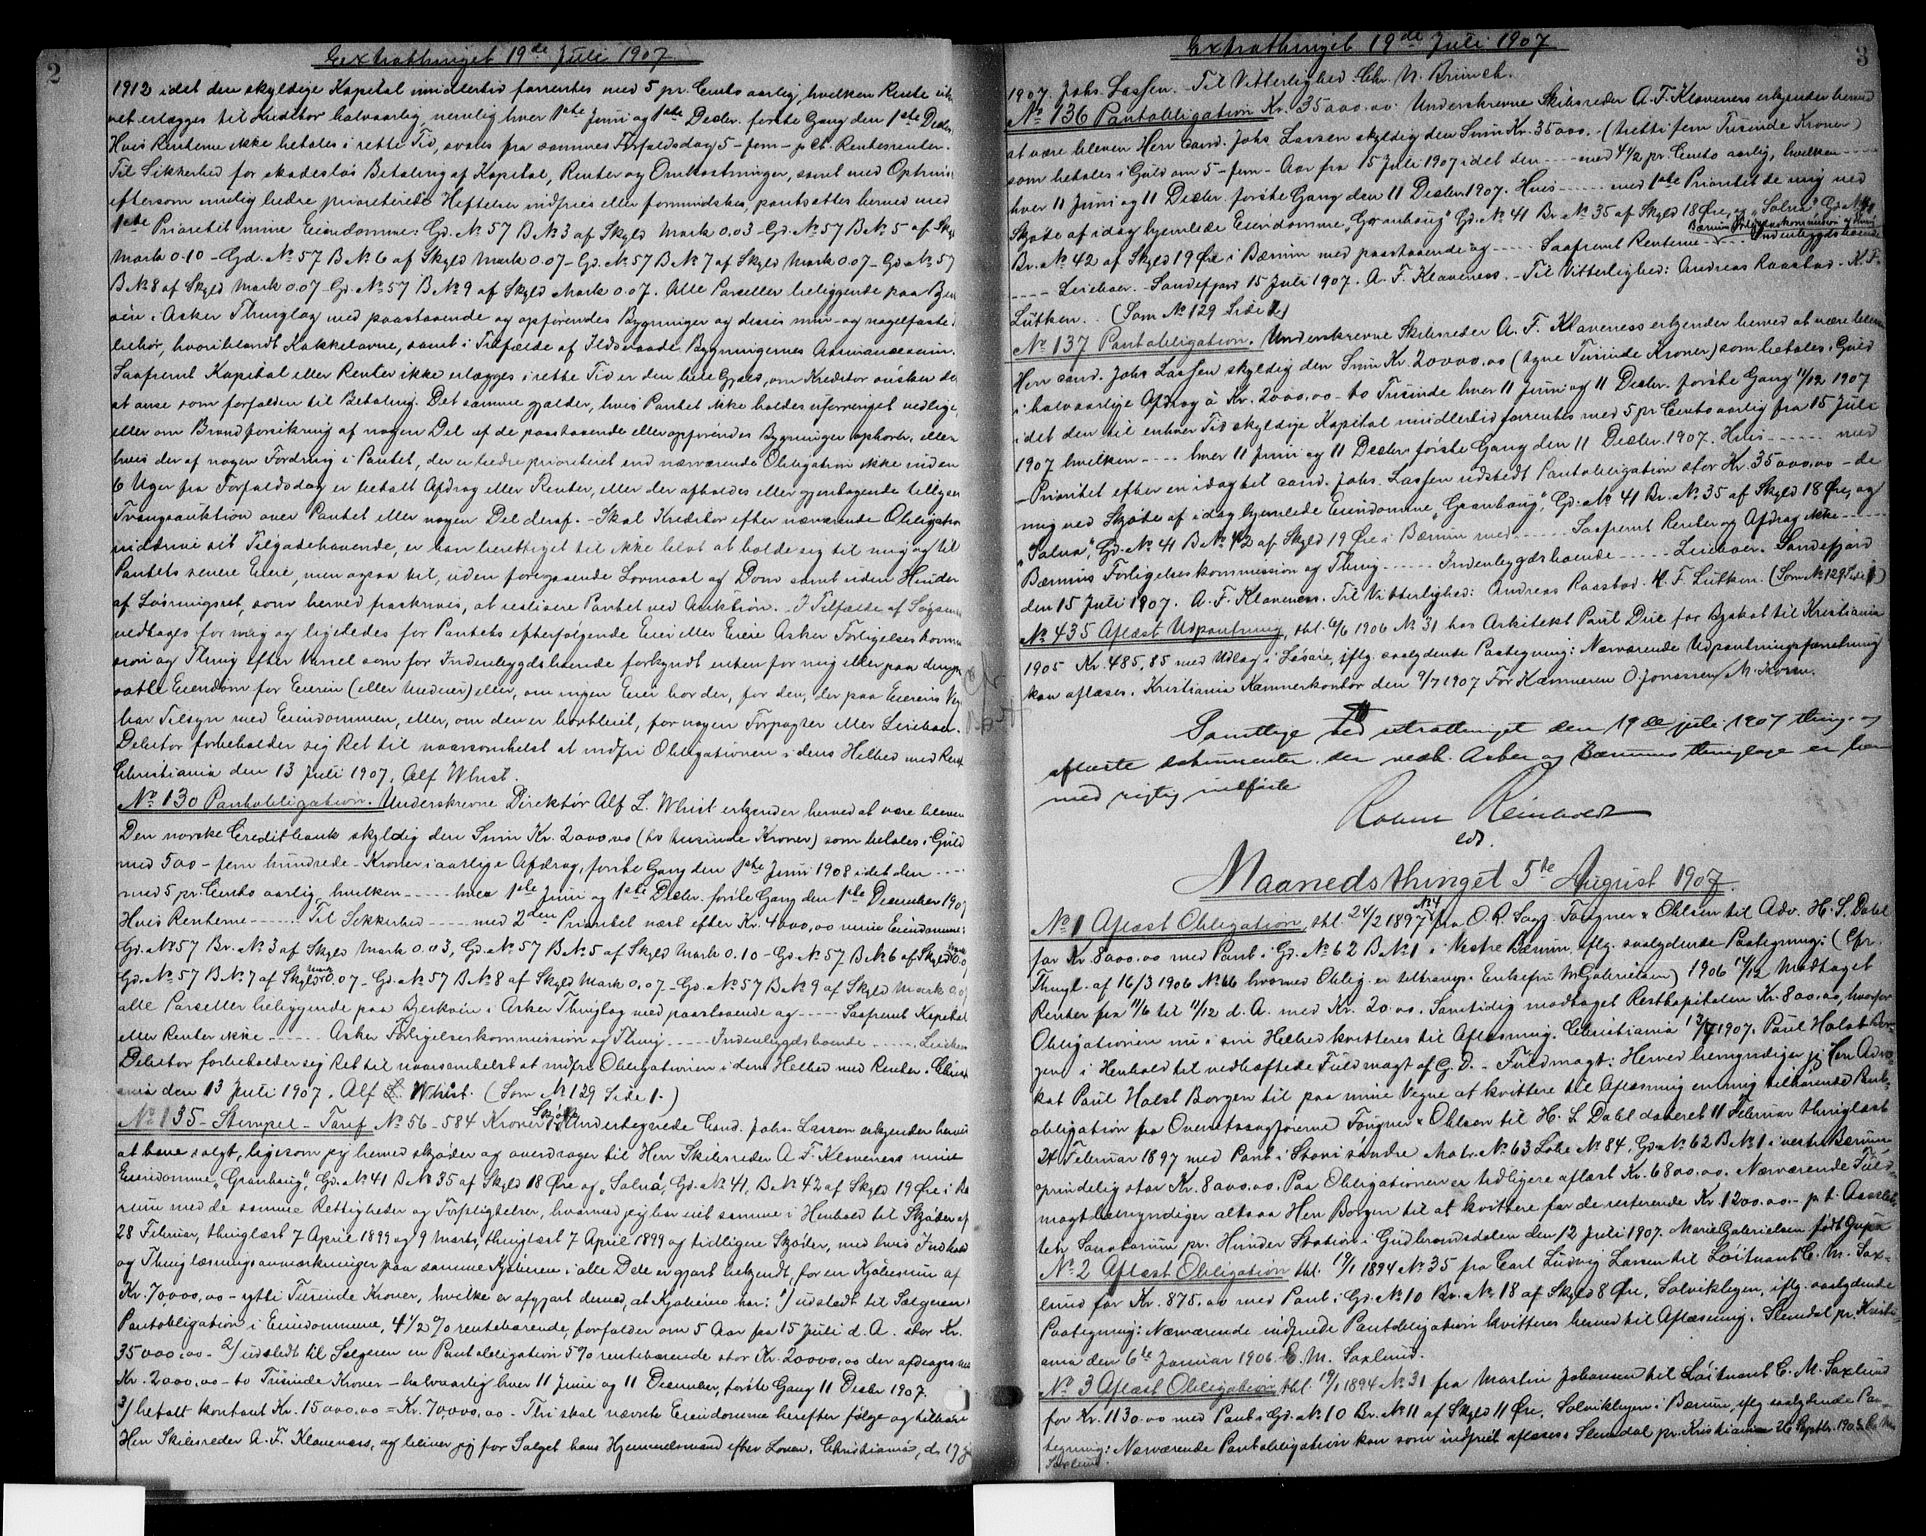 2
Extrathinget 19de Juli 1907.
1912 idet den skyldige Kapital imidlertid forrentes med 5 pr. Cento aarlig, hvilken Rente
ret erlægges til Kreditor halvaarlig, nemlig hver 1ste Juni og 1ste Decbr. første Gang den 1ste Decbr.
Hvis Renterne ikke betales i rette Tid, svares fra sammes Forfaldsdag 5 - fem - pCt. Rentesrenter.
Til Sikkerhed for skadesløs Betaling af Kapital, Renter og Omkostninger, samt med Optrins
eftersom mulig bedre prioriterede Heftelser indfries eller formindskes, pantsættes herved med
1ste Prioritet mine Eiendomme: Gd. No 57 B No 3 af Skyld Mark 0.03 - Gd. No 57 B No 5 af Skyld
Mark 0.10 - Gd. No 57 B No 6 af Skyld Mark 0.07 - Gd. No 57 B No 7 af Skyld Mark 0.07 - Gd. No 57
B No 8 af Skyld Mark 0.07 - Gd. No 57 B No 9 af Skyld Mark 0.07. Alle Parceller beliggende paa Bjerk
øen i Asker Thinglag med paastaaende og opførendes Bygninger og disses mur- og nagelfaste
behør, hvoriblandt Kakkelovne, samt i Tilfælde af Ildsvaade Bygningernes Assurancesum.
Saafremt Kapital eller Renter ikke erlægges i rette Tid er den hele Gjæld, om Kreditor ønsker det
at anse som forfalden til Betaling. Det samme gjælder, hvis Pantet ikke holdes uforringet vedlige,
eller om Brandforsikring af nogen Del af de paastaaende eller opførendes Bygninger ophører, eller
hvis der af nogen Fordring i Pantet, der er bedre prioriteret end nærværende Obligation ikke inden
6 Uger fra Forfaldsdag er betalt Afdrag eller Renter, eller der afholdes eller gjentagende tillyses
Tvangsauktion over Pantet eller nogen Del deraf. - Skal Kreditor efter nærværende Obligation
inddrive sit Tilgodehavende, er han berettiget til ikke blot at holde sig til mig og til
Pantets senere Eiere, men ogsaa til, uden foregaaende Lovmaal og Dom samt uden Hinder
af Løsningsret, som herved fraskrives, at realisere Pantet ved Auktion. - I Tilfælde af Søgsmaal
vedtages for mig og ligeledes for Pantets efterfølgende Eier eller Eiere Asker Forligelseskommis
sion og Thing efter Varsel som for Indenbygdsboende forkyndt enten for mig eller paa den pant
satte Eiendom for Eieren (eller Medeier) eller, om ingen Eier bor der, for den, der paa Eierens Vegne
har Tilsyn med Eiendommen, eller, om den er bortleiet, for nogen Forpagter eller Leieboer.
Debitor forbeholder sig Ret til naarsomhelst at indfri Obligationen i dens Helhed med Renter
Christiania den 13 Juli 1907. Alf Whist.
No 130 Pantobligation. Underskrevne Direktør Alf L. Whist erkjender herved at være bleven
Den norske Creditbank skyldig den Sum Kr. 2000.00 (to tusinde Kroner) som betales i Guld
med 500 - fem hundrede - Kroner i aarlige Afdrag, første Gang den 1ste Juni 1908 idet den ----
med 5 pr. Cento aarlig, hvilken ---- hver 1ste Juni og 1ste Decbr. første Gang den 1ste December 1907
Hvis Renterne ---- Til Sikkerhed ---- med 2den Prioritet næst efter Kr. 4000,00 mine Eiendomme:
Gd. No 57 Br. No 3 af Skyld Mark 0.03, Gd. No 57 B No 5 af Skyld Mark 0.10 - Gd. No 57 B No 6 af Skyld Mark
Gd. No 57 B No 7 af Skyld Mark 0.07 - Gd. No 57 B No 8 af Skyld Mark 0.07 - Gd. No 57 B No 9 af Skyld Mark 0.07
alle Parceller beliggende paa Bjerkøen i Asker Thinglag med paastaaende og ---- Saafremt Kapital
eller Renter ikke ---- Asker Forligelseskommission og Thing ---- Indenbygdsboende ---- Leieboer
Debitor forbeholder sig Ret til naarsomhelst at indfri Obligationen i dens Helhed med Renter. Christi
ania den 13 Juli 1907. Alf L. Whist. (Som No 129 Side 1.)
No 135 - Stempel - Taref No 56 - 584 Kroner Skjøde. Undertegnede Cand. Johs. Lassen erkjender herved
at have solgt, ligesom jeg herved skjøder og overdrager til Herr Skibsreder A. F. Klaveness mine
Eiendomme "Granhaug", Gd. No 41 B No 35 af Skyld 18 Øre og "Solna", Gd. No 41, B No 42 af Skyld 19 Øre i Bæ
rum med de samme Rettigheder og Forpligtelser, hvormed jeg har eiet samme i Henhold til Skjøder af
28 Februar, thinglæst 7 April 1899 og 9 Marts, thinglæst 7 April 1899 og tidligere Skjøder, med hvis Indhold
og Thinglæsningsanmærkninger paa samme Kjøberen i alle Dele er gjort bekjendt, for en Kjøbesum af
Kr. 70,000,00 - sytti Tusinde Kroner, hvilke er afgjort derved, at Kjøberen har: 1) udstedt til Sælgeren
Pantobligation i Eiendommene, 4 1/2 % rentebærende, forfalder om 5 Aar fra 15 Juli d. A. stor Kr.
35000,00 - 2) udstedt til Sælgeren en Pantobligation 5% rentebærende stor Kr. 20000,00 der afdrages med
Kr. 2000,00 - to Tusinde Kroner - halvaarlig hver 11 Juni og 11 December, første Gang 11 Decbr 1907.
3) betalt kontant Kr. 15000,00 = Kr. 70,000,00 - Thi skal nævnte Eiendomme herefter følge og tilhøre
Herr Skibsreder A. F. Klaveness, og bliver jeg for Salget hans Hjemmelsmand efter Loven. Christiania, d. 17
3
Extrathinget 19de Juli 1907
1907. Johs. Lassen. - Til Vitterlighed: Chr. N. Brunch.
No 136 Pantobligation Kr. 35000.00. Underskrevne Skibsreder A. F. Klaveness erkjender herved
at være bleven Herr Cand. Johs Lassen skyldig den Sum Kr. 35000. - (tretti fem Tusinde Kroner)
som betales i Guld om 5 - fem - Aar fra 15 Juli 1907 idet den ---- med 4 1/2 pr. Cento aarlig, hvilken ----
hver 11 Juni og 11 Decbr. første Gang den 11 Decbr. 1907. Hvis ---- med 1ste Prioritet de mig ved
Skjøte af idag hjemlede Eiendomme, "Granhaug" Gd. No 41 Br. No 35 af Skyld 18 Øre, og "Solna" Gd. No 41
Bærums Forligelseskommission og Thing
Br. No 42 af Skyld 19 Øre i Bærum med paastaaende og ---- Saafremt Renterne ---- Indenbygdsboende
---- Leieboer. - Sandefjord 15 Juli 1907. A. F. Klaveness. - Til Vitterlighed: Andreas Raastad. H. F.
Lütken. (Som No 129 Side 1)
No 137 Pantobligation. Underskrevne Skibsreder A. F. Klaveness erkjender herved at være bleven
Herr cand. Johs Lassen skyldig den Sum Kr. 20000.00 (tyve Tusinde Kroner) som betales i Guld
i halvaarlige Afdrag à Kr. 2000.00 - to Tusinde hver 11 Juni og 11 Decbr. første Gang 11/12 1907
idet den til enhver Tid skyldige Kapital imidlertid forrentes med 5 pr. Cento aarlig fra 15 Juli
1907 hvilken ---- hver 11 Juni og 11 Decbr. første Gang den 11 Decbr. 1907. Hvis ---- med
- Prioritet efter en idag til cand. Johs. Lassen udstedt Pantobligation stor Kr. 35000.00 - de
mig ved Skjøte af idag hjemlede Eiendomme, "Granhaug", Gd. No 41 Br. No 35 af Skyld 18 Øre, og
"Solna", Gd. No 41 B No 42 af Skyld 19 Øre i Bærum med ---- Saafremt Renter og Afdrag ikke ----
Bærums Forligelseskommission og Thing ---- Indenbygdsboende ---- Leieboer. Sandefjord
den 15 Juli 1907. A. F. Klaveness. Til Vitterlighed: Andreas Raastad. H. F. Lütken. (Som No 129 Side 1)
No 435 Aflæst Udpantning, thl. 6/6 1906 No 31 hos Arkitekt Paul Due for Byskat til Kristiania
1905 Kr. 485,85 med Udlæg i Løsøre, iflg. saalydende Paategning: Nærværende Udpantningsforretning
kan aflæses. Kristiania Kæmnerkontor den 9/7 1907 For Kæmneren O. Jonassen / M. Koren.
Samtlige ved extrathinget den 19de juli 1907 thing- og
aflæste dokumenter, der vedk. Asker og Bærums thinglage er her
med rigtig indførte
Reinholdt
edv.
Maanedsthinget 5te August 1907.
No 1 Aflæst Obligation, thl. 24/2 1897 No 4 fra O. R. Sagf. Fougner & Ohlsen til Adv. H. S. Dahl
for Kr. 8000.00 med Pant i Gd. No 62 B No 1 i Vestre Bærum, iflg. saalydende Paategning: (Cfr.
Thingl. af 16/3 1906 No 66 hvorved Oblig. er tiltransp. Enkefru M. Gabrielsen) 1906 14/12 Modtaget
Renter fra 11/6 til 11/12 d. A. med Kr. 20.00. Samtidig modtaget Restkapitalen Kr. 800.00, hvorfor
Obligationen nu i sin Helhed kvitteres til Aflæsning. Christiania 13/7 1907. Paul Holst Bor-
gen i Henhold til vedheftede Fuldmagt af G. D. - Fuldmagt: Herved bemyndiger jeg Herr Advo-
kat Paul Holst Borgen til paa mine Vegne at kvittere til Aflæsning en mig tilhørende Pant-
obligation fra Overretssagførerne Fougner & Ohlsen til H. S. Dahl dateret 11 Februar thinglæst
24 Februar 1897 med Pant i Stovi søndre Matr. No 63 Løbe No 84, Gd. No 62 B No 1 i vestre Bærum
oprindelig stor Kr. 8000.00. Paa Obligationen er tidligere aflæst Kr. 6800.00. Nærværende Fuld-
magt bemyndiger altsaa Herr Borgen til at kvittere for de resterende Kr. 1200.00 - p. t.
Sanatorium pr. Hunder Station i Gudbrandsdalen den 12 Juli 1907. Marie Gabrielsen født
No 2 Aflæst Obligation thl. 19/1 1894 No 35 fra Carl Ludvig Larsen til Løitnant C. M. Sax-
lund for Kr. 875.00 med Pant i Gd. No 10 Br. No 18 af Skyld 8 Øre, Solviklyen, iflg. saalydende
Paategning: Nærværende indfriede Pantobligation kvitteres herved til Aflæsning. Slemdal pr. Kristi-
ania den 6te Januar 1906. C. M. Saxlund.
No 3 Aflæst Obligation thl. 19/1 1894 No 31 fra Martin Johansen til Løitnant C. M. Saxlund
for Kr. 1130.00 med Pant i Gd. No 10 Br. No 11 af Skyld 11 Øre, Solviklyen i Bærum, iflg. saalydende Paa-
tegning: Nærværende Pantobligation kan som indfriet aflæses. Slemdal pr. Kristiania 26 Septbr. 1905. C. M.
Saxlund.